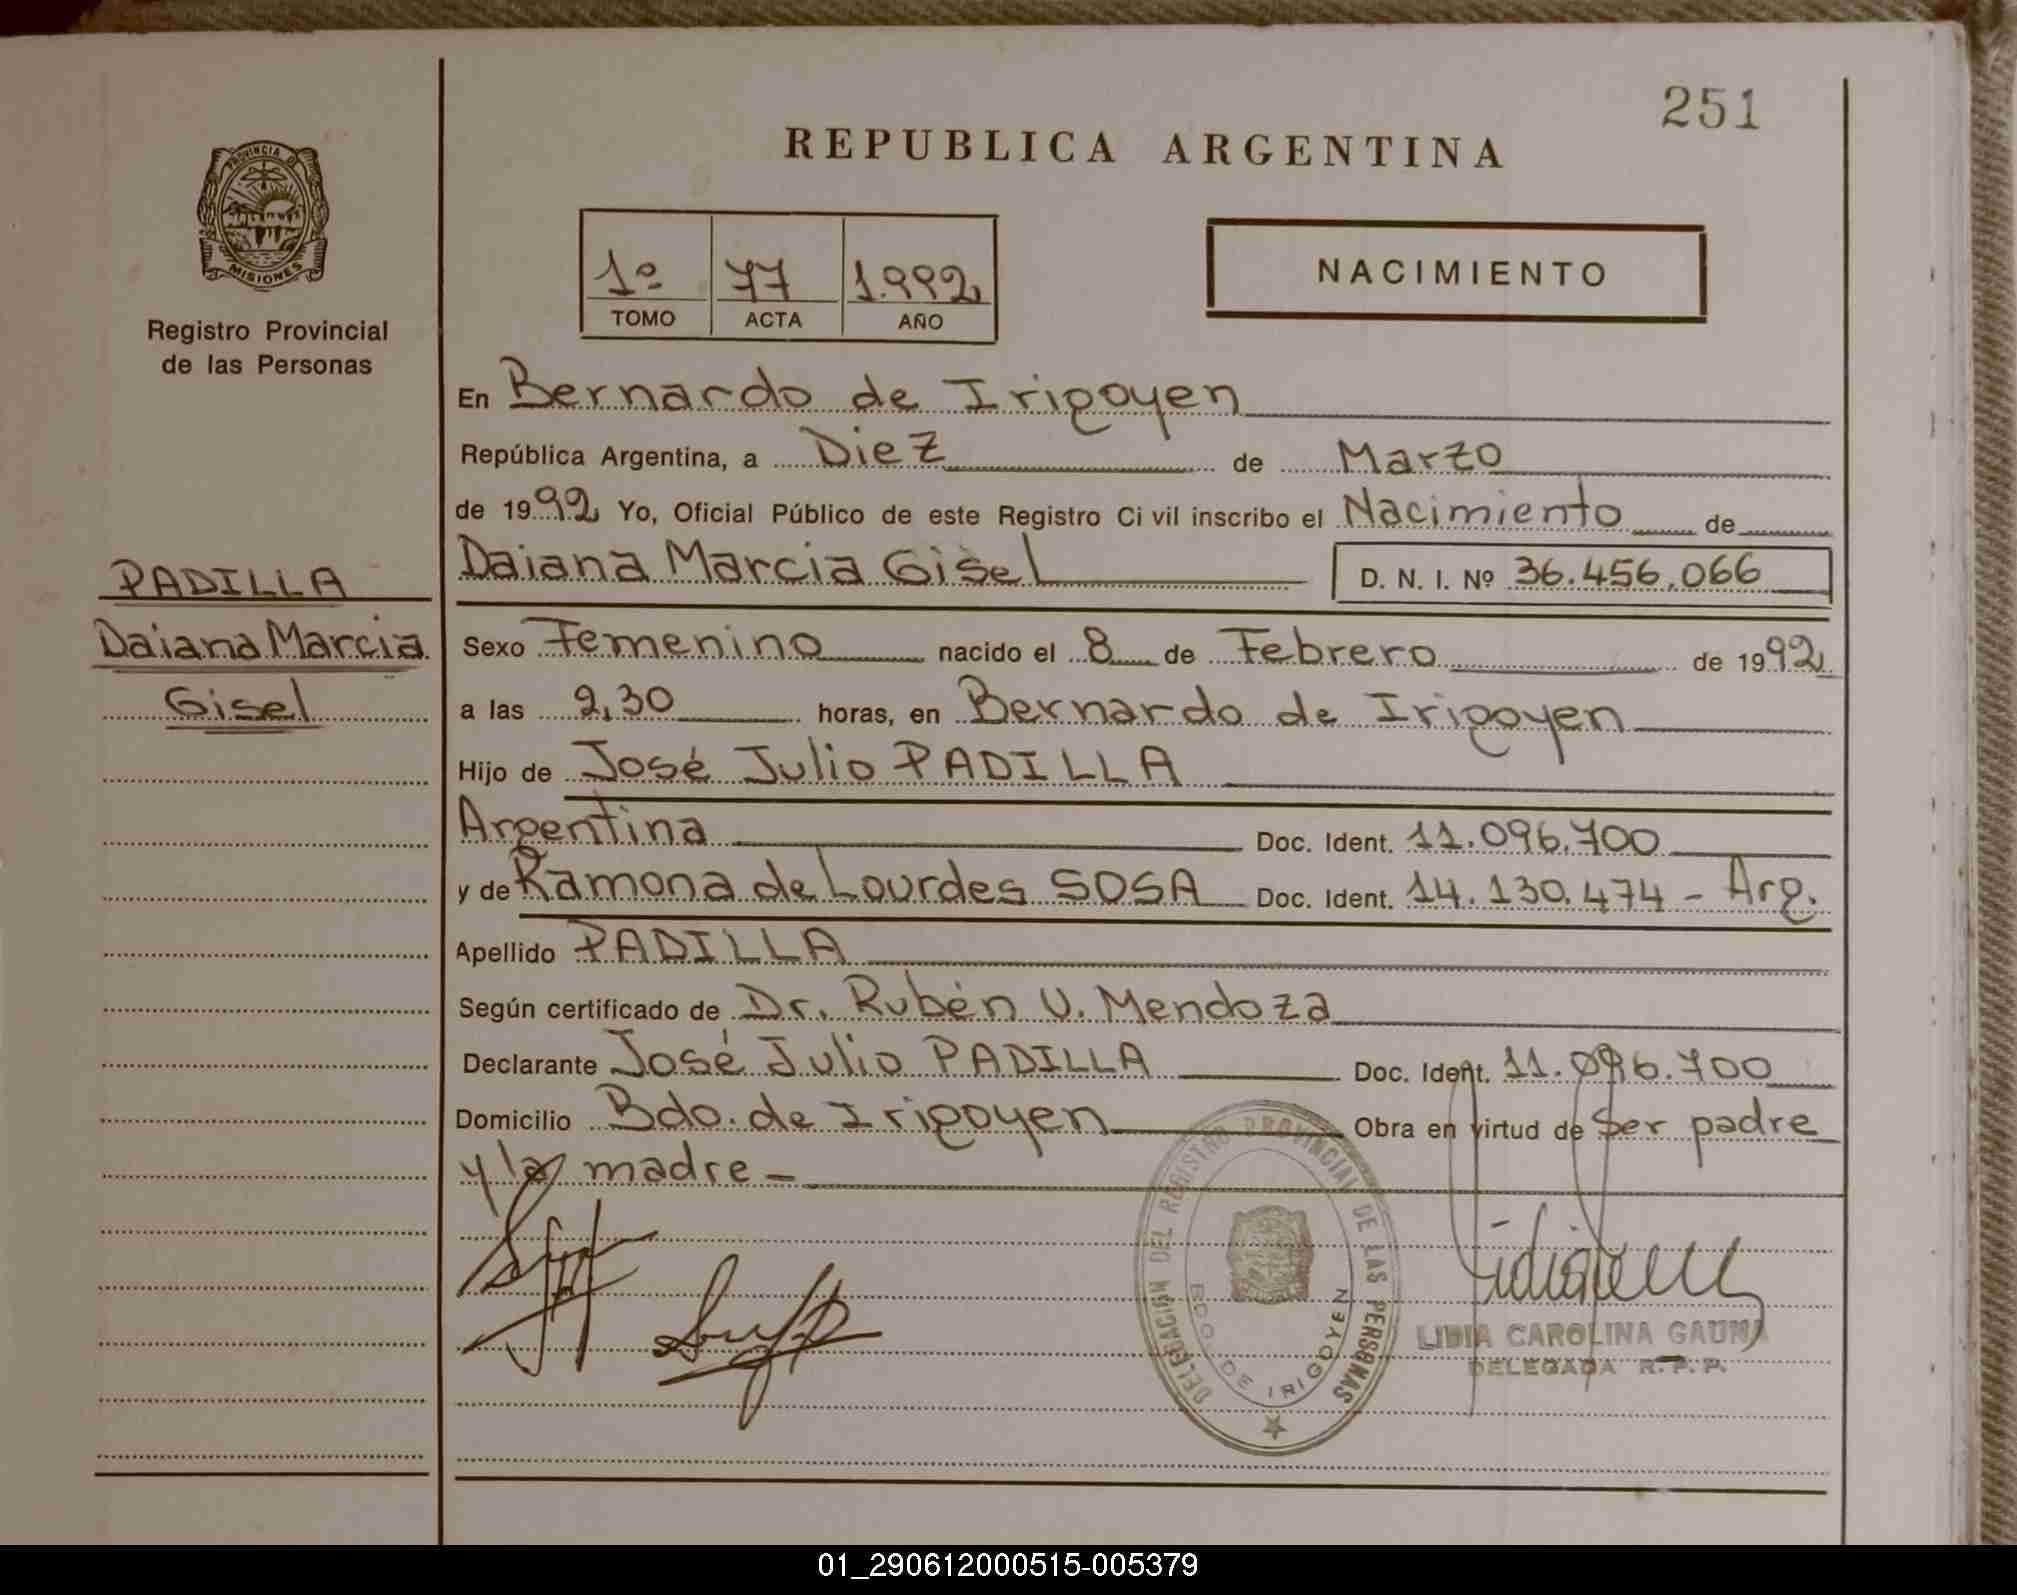 251
REPUBLICA ARGENTINA
PROVINCIA DE
MISIONES
Registro Provincial
de las Personas
1º 77 1.992
TOMO ACTA AÑO
NACIMIENTO
En Bernardo de Irigoyen
República Argentina, a Diez de Marzo
de 1992 Yo, Oficial Público de este Registro Ci vil inscribo el Nacimiento de
Daiana Marcia Gisel D. N. I. Nº 36.456.066
PADILLA
Daiana Marcia
Gisel
Sexo Femenino nacido el 8 de Febrero de 1992
a las 2,30 horas, en Bernardo de Irigoyen
Hijo de José Julio PADILLA
Argentina Doc. Ident. 11.096.700
y de Ramona de Lourdes SOSA Doc. Ident. 14.130.474 - Arg.
Apellido PADILLA
Según certificado de Dr. Rubén V. Mendoza
Declarante José Julio PADILLA Doc. Ident. 11.096.700
Domicilio Bdo. de Irigoyen Obra en virtud de Ser padre
y la madre -
DELEGACION DEL REGISTRO PROVINCIAL DE LAS PERSONAS
BDO. DE IRIGOYEN
LIDIA CAROLINA GAUNA
DELEGADA R. P. P.
01_290612000515-005379